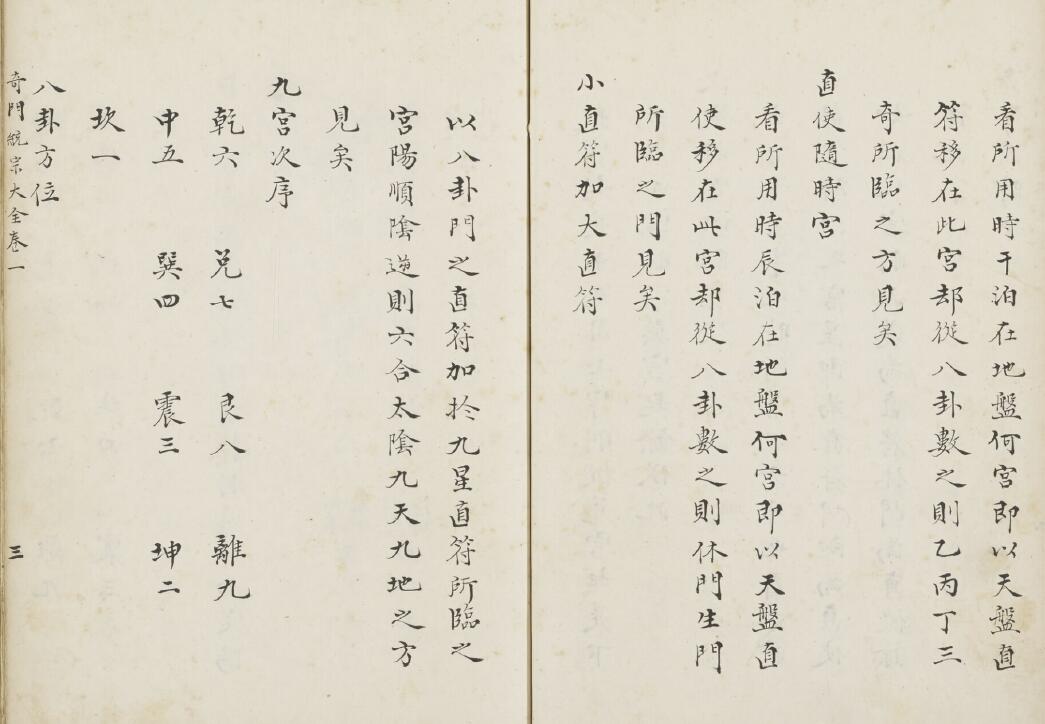 看所用時干泊在地盤何宮即以天盤直
符移在此宮却從八卦數之則乙丙丁三
奇所臨之方見矣
直使隨時宮
看所用時辰泊在地盤何宮即以天盤直
使移在此宮却從八卦數之則休門生門
所臨之門見矣
小直符加大直符
以八卦門之直符加於九星直符所臨之
宮陽順陰逆則六合太陰九天九地之方
見矣
九宮次序
乾六 兌七 艮八 離九
中五 巽四 震三 坤二
坎一
八卦方位
奇門統宗大全卷一 三